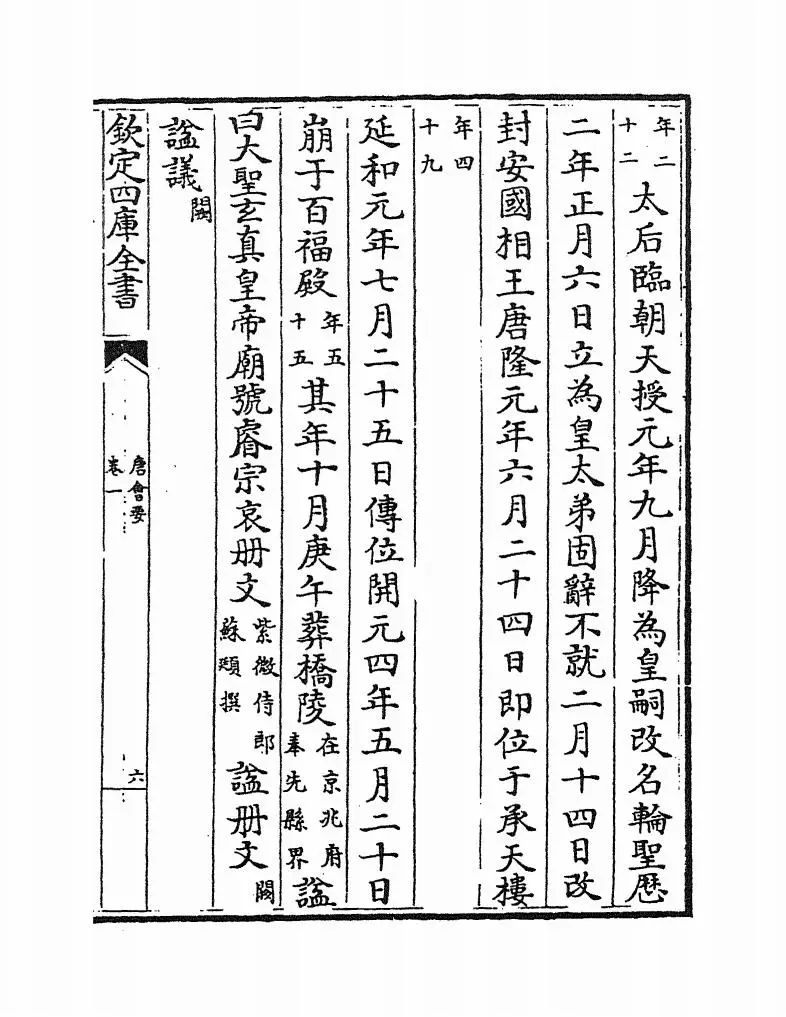 年二十二太后臨朝天授元年九月降為皇嗣改名輪聖厯
二年正月六日立為皇太弟固辭不就二月十四日改
封安國相王唐隆元年六月二十四日即位于承天樓
年四十九
延和元年七月二十五日傳位開元四年五月二十日
崩于百福殿年五十五其年十月庚午葬橋陵在京兆府奉先縣界諡
曰大聖玄真皇帝廟號睿宗哀册文紫微侍郎蘇頲撰諡册文闕
諡議闕
欽定四庫全書
唐會要
卷一
六